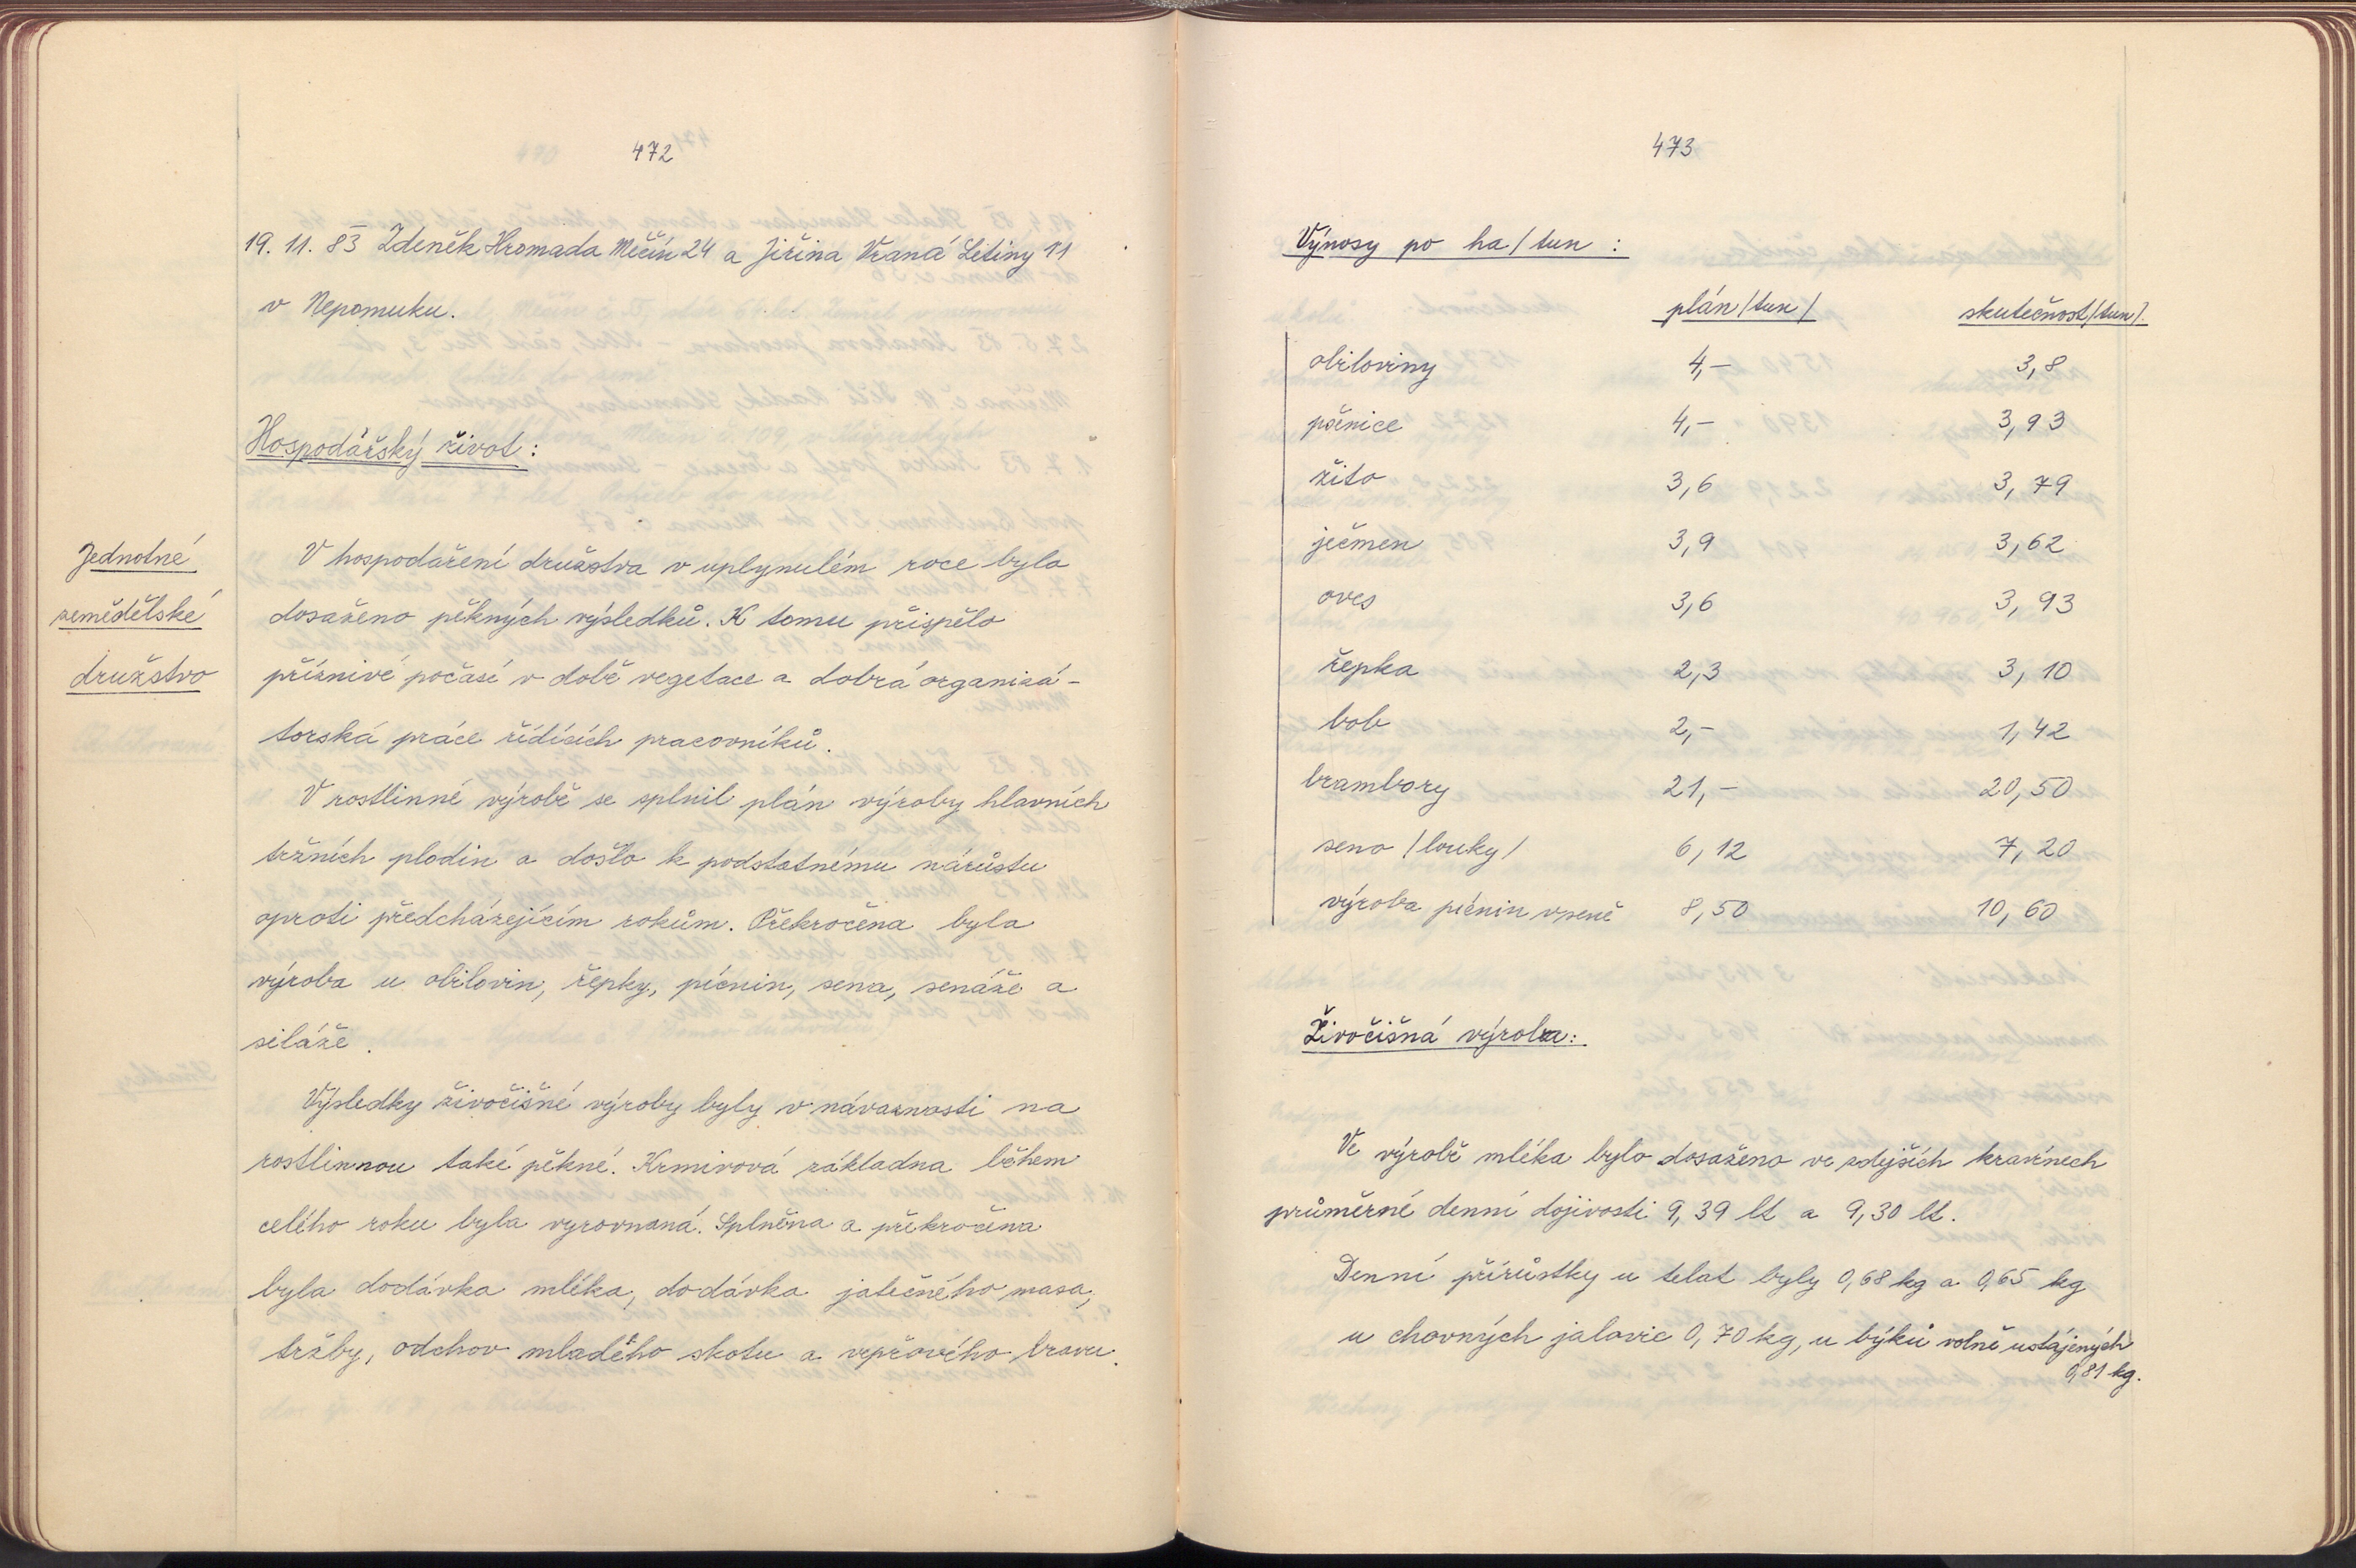 472
19. 11. 83 Zdeněk Hromada Měčín 24 a Jiřina Vraná Letiny 11
v Nepomuku.
Hospodářský život:
Jednotné
zemědělské
družstvo
V hospodaření družstva v uplynulém roce bylo
dosaženo pěkných výsledků. K tomu přispělo
příznivé počasí v době vegetace a dobrá organizá-
torská práce řídících pracovníků.
V rostlinné výrobě se splnil plán výroby hlavních
tržních plodin a došlo k podstatnému nárůstu
oproti předcházejícím rokům. Překročena byla
výroba u obilovin, řepky, pícnin, sena, senáže a
siláže.
Výsledky živočišné výroby byly v návaznosti na
rostlinnou také pěkné. Krmivová základna během
celého roku byla vyrovnaná. Splněna a překročena
byla dodávka mléka, dodávka jatečného masa,
tržby, odchov mladého skotu a vepřového bravu.
473
Výnosy po ha/tun:
plán/tun/ skutečnost/tun/.
obiloviny 4,- 3,8
pšenice 4,- 3,93
žito 3,6 3,79
ječmen 3,9 3,62
oves 3,6 3,93
řepka 2,3 3,10
bob 2,- 1,42
brambory 21,- 20,50
seno /louky/ 6,12 7,20
výroba pícnin vseně 8,50 10,60
Živočišná výroba:
Ve výrobě mléka bylo dosaženo ve zdejších kravínech
průměrné denní dojivosti 9,39 lt a 9,30 lt.
Denní přírůstky u telat byly 0,68 kg a 0,65 kg
u chovných jalovic 0,70 kg, u býků volně ustájených
0,81 kg.